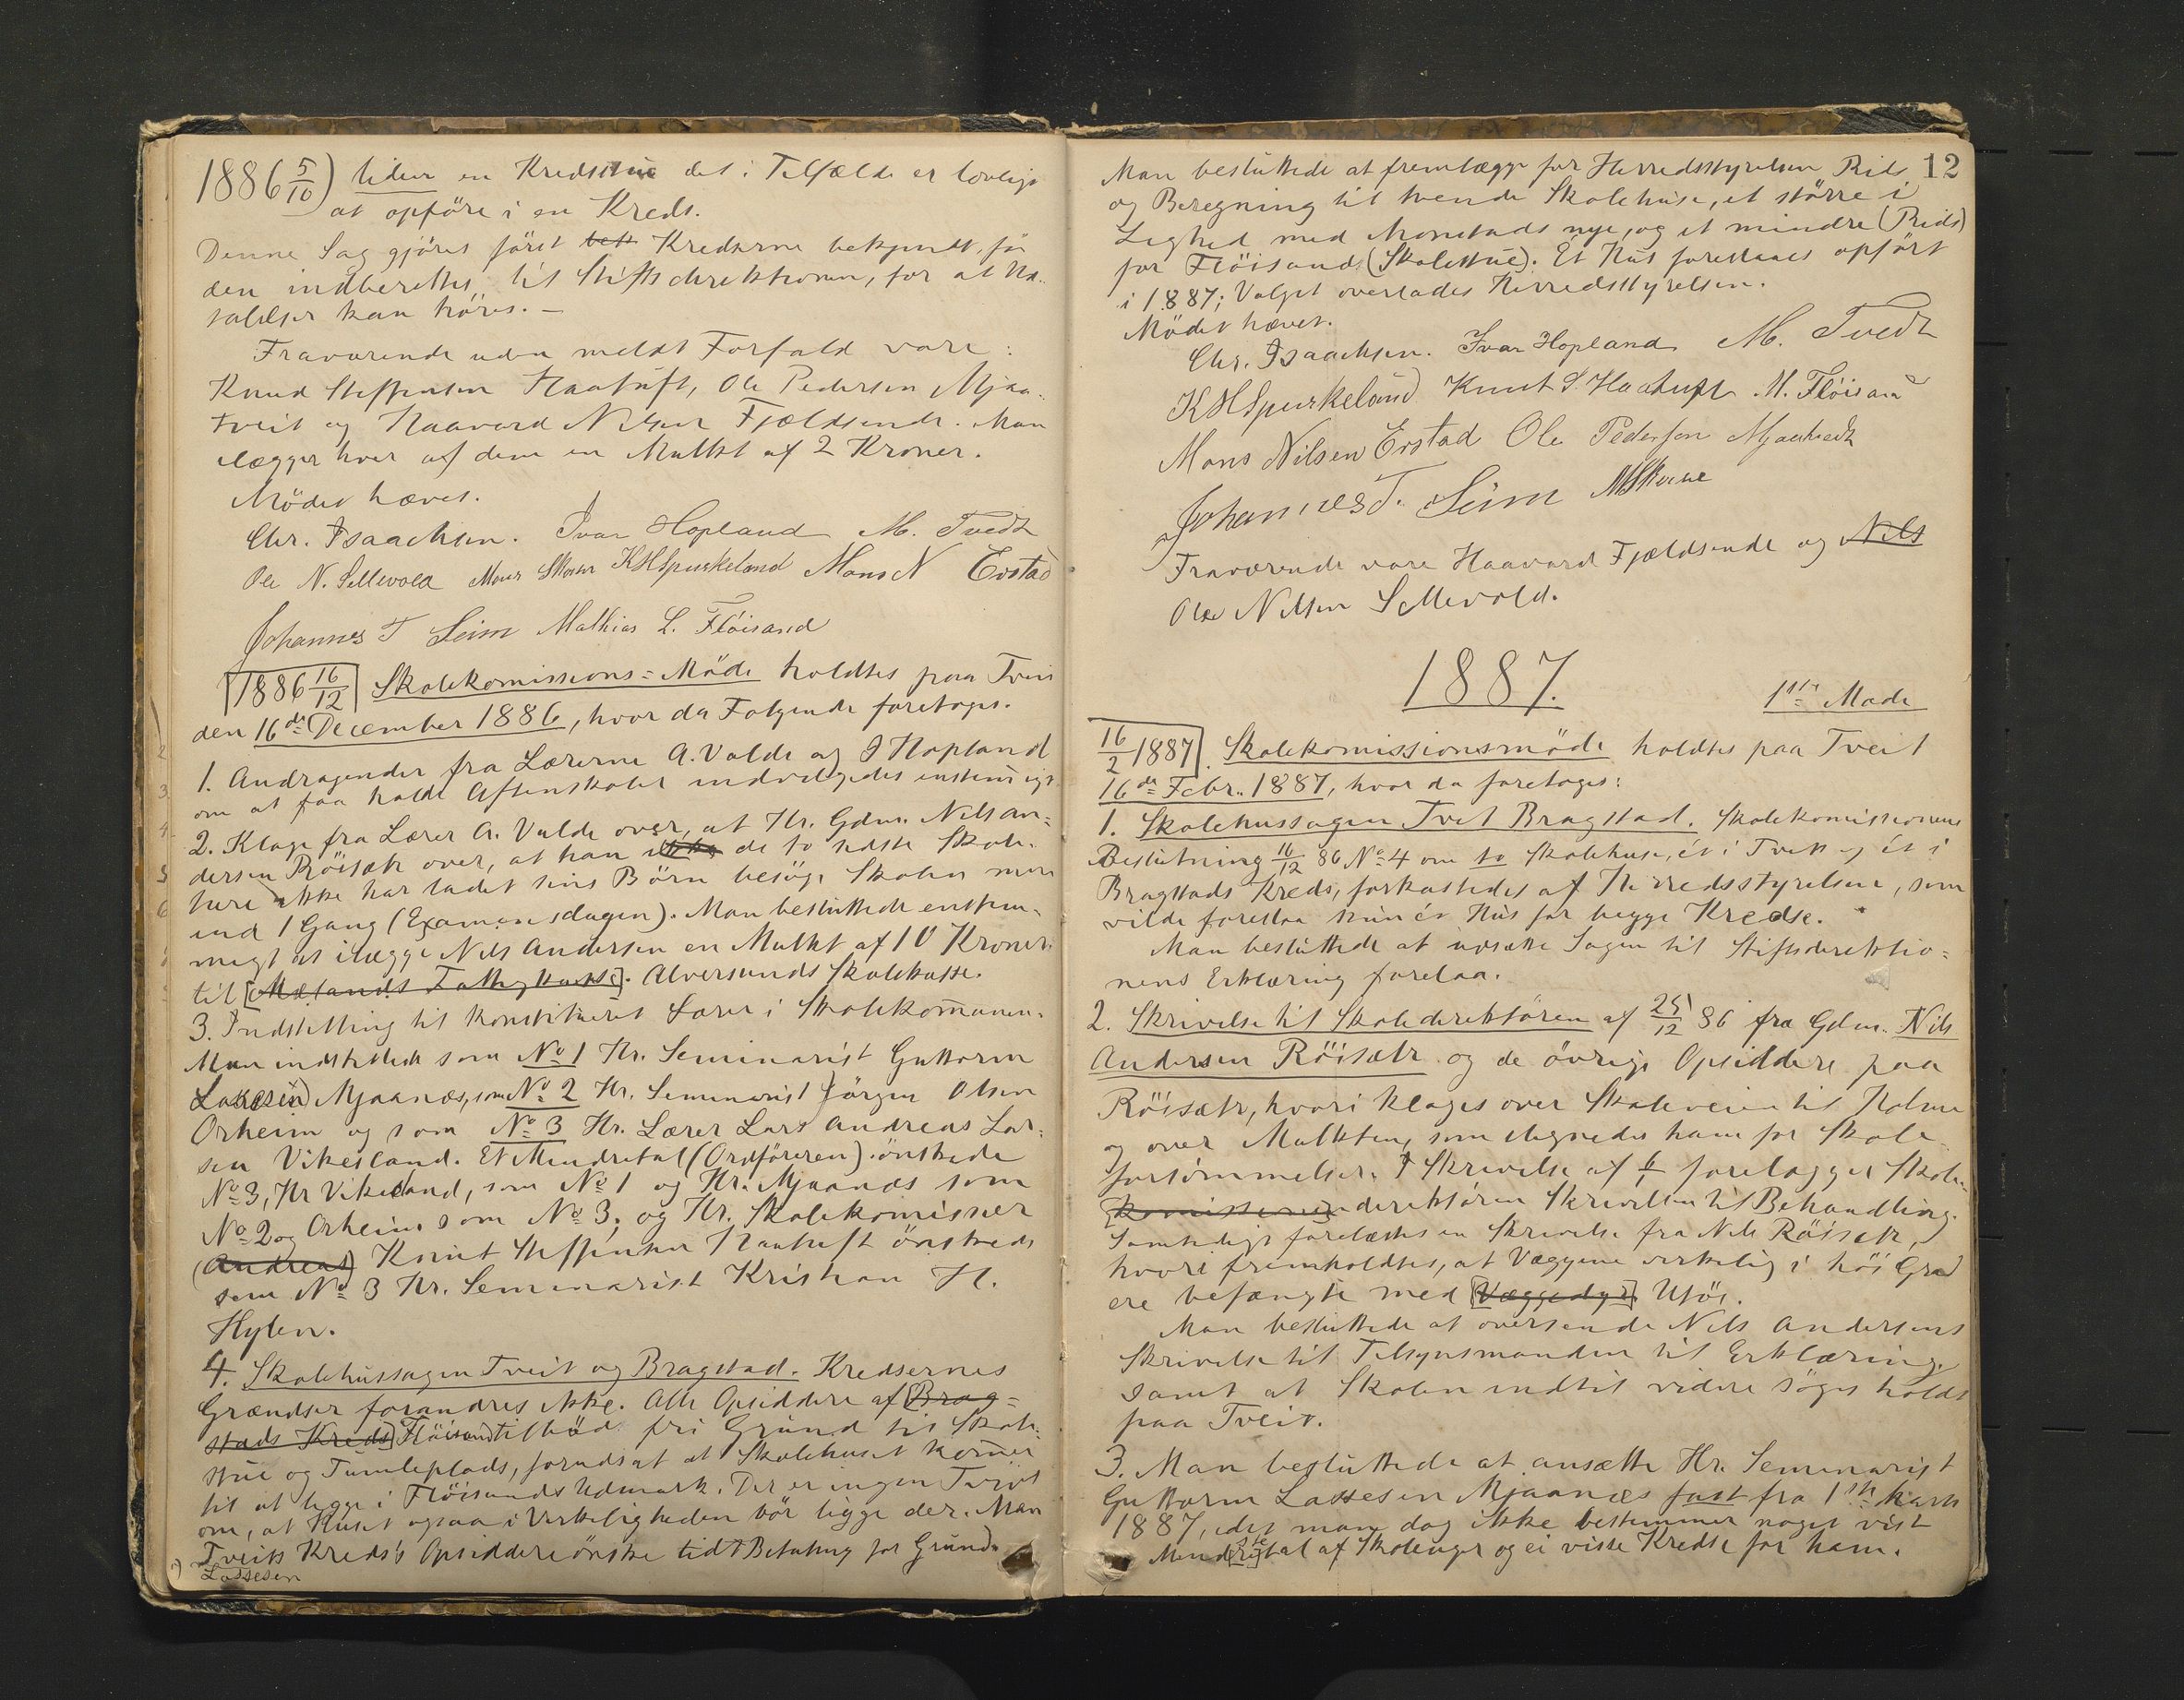 1886 5/10) uden en Kredsstue det i Tilfælde er lovligt
at opföre i en Kreds.
Denne Sag gjöres först Kredserne bekjendt, för
den indberettes til Stiftsdirektionen, for at Ud-
talelser kan höres. –
Fraværende uden meldt Forfald vare:
Knud Steffensen Haatuft, Ole Pedersen Mjaa-
tveit og Haavard Nilsen Fjeldsende. Man
ilægger hver af dem en Mulkt af 2 Kroner.
Mödet hævet.
Chr. Isaachsen. Ivar Hopland M. Tvedt
Ole N. Sellevold Mons Skorve KHSpurkeland Mons N Evstad
Johannes T Seim Mathias L. Flöisand
1886 16/12 Skolekomissions=Möde holdtes paa Tveit
den 16de December 1886, hvor da Folgende foretoges.
1. Andragender fra Lærerne A. Valde og I Hopland
om at faa holde Aftenskoler indvilgedes enstemigt
2. Klage fra Lærer A. Valde over, at Hr. Gdm. Nils An=
dersen Röisætr over, at han de to sidste Skole-
ikke har ladet sine Börn besöge Skolen mere
end 1 Gang (Examensdagen). Man besluttede enstem-
migt at ilægge Nils Andersen en Mulkt af 10 Kroner
til [Mælands Fattigkasse]. Alversunds Skolekasse.
3. Indstilling til konstitueret Lærer i Skolekommunen.
Man indstillede som No 1 Hr. Seminarist Guttorm
Lassesen) Mjaanæs, som No 2 Hr. Seminarist Jörgen Olsen
Orheim og som No 3 Hr. Lærer Lars Andreas Lar-
sen Vikesland. Et Mindretal (Ordföreren) önskede
No 3, Hr Vikesland, som No 1 og Hr. Mjaanæs som
No 2 og Orheim som No 3, og Hr. Skolekomissær
(Andreas) Knut Steffensen Haatuft önskede
som No 3 Hr. Seminarist Kristian H.
Hylen.
4. Skolehussagen Tveit og Bragstad. Kredsernes
Grændser forandres ikke. Alle Opsiddere af [Brag=
stads Kreds] Flöisand tilböd fri Grund til Skole-
stue og Tumleplads, forudsat at Skolehuset kommer
til at ligge i Flöisands Udmark. Der er ingen Tvivl
om, at Huset ogsaa i Virkeligheden bör ligge der. Man
Tveits Kreds's Opsiddere önske lidt Betaling for Grund.
Lassesen
12
Man besluttede at fremlægge for Herredsstyrelsen Rids
og Beregning til tvende Skolehuse, et större i
Lighed med Monstads nye, og et mindre (Rids)
for Flöisand (Skolestue). Et Hus foreslaaes opfört
i 1887; Valget overlades Herredsstyrelsen.
Mödet hævet.
Chr. Isaachsen. Ivar Hopland M. Tvedt
KHSpurkeland Knut S. Haatuft M. Flöisand
Mons Nilsen Evstad Ole Pedersen Mjaatvedt
Johannes T. Seim MSkorve
Fraværende vare Haavard Fjeldsende og Nils
Ole Nilsen Sellevold.
1887.
1ste Möde
16/2 1887. Skolekomissionsmöde holdtes paa Tveit
16de Febr. 1887, hvor da foretoges:
1. Skolehussagen Tveit Bragstad. Skolekomissionens
Beslutning 16/12 86 No 4 om to Skolehuse, ét i Tveit og ét i
Bragstads Kreds, forkastedes af Herredsstyrelsen, som
vilde foreslaa kun ét Hus for begge Kredse.
Man besluttede at udsætte Sagen til Stiftsdirektio=
nens Erklæring forelaa.
2. Skrivelse til Skoledirektören af 25/12 86 fra Gdm. Nils
Andersen Röisætr og de övrige Opsiddere paa
Röisætr, hvori klages over Skoleveien til Holme
og over Mulkten, som ilignedes ham for Skole-
forsömmelser. I Skrivelse af forelægger Skole-
[komissionen] direktören Skrivelsen til Behandling.
Samtidigt forelæstes en Skrivelse fra Nils Röisætr,
hvori fremholdtes, at Væggene virkelig i höi Grad
ere befængte med [Væggedyr] Utöi.
Man besluttede at oversende Nils Andersens
Skrivelse til Tilsynsmanden til Erklæring.
samt at Skolen indtil videre söges holdt
paa Tveit.
3. Man besluttede at ansætte Hr. Seminarist
Guttorm Lassesen Mjaanæs fast fra 1ste Marts
1887, idet man dog ikke bestemmer noget vist
Mind[re]stetal af Skoleuger og ei visse Kredse for ham.